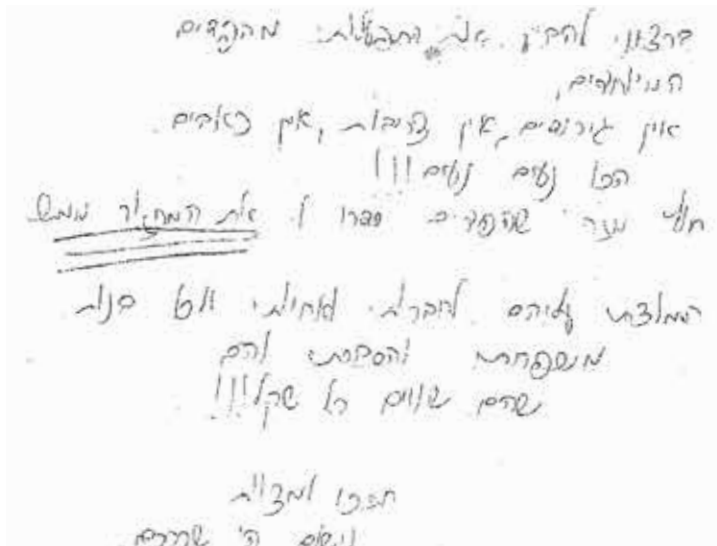 ברצוני להביע את התפעלותי מהפדים
המיוחדים,
אין גירויים, אין צריבות, אין כאבים
הכל נעים נעים!!!
חוץ מזה שהפדים סידרו לי את המחזור ממש
המלצתי עליהם לחברותי לאחיותי ולכל בנות
משפחתי והסברתי להם
שהם שווים כל שקל!!!
תזכו למצוות